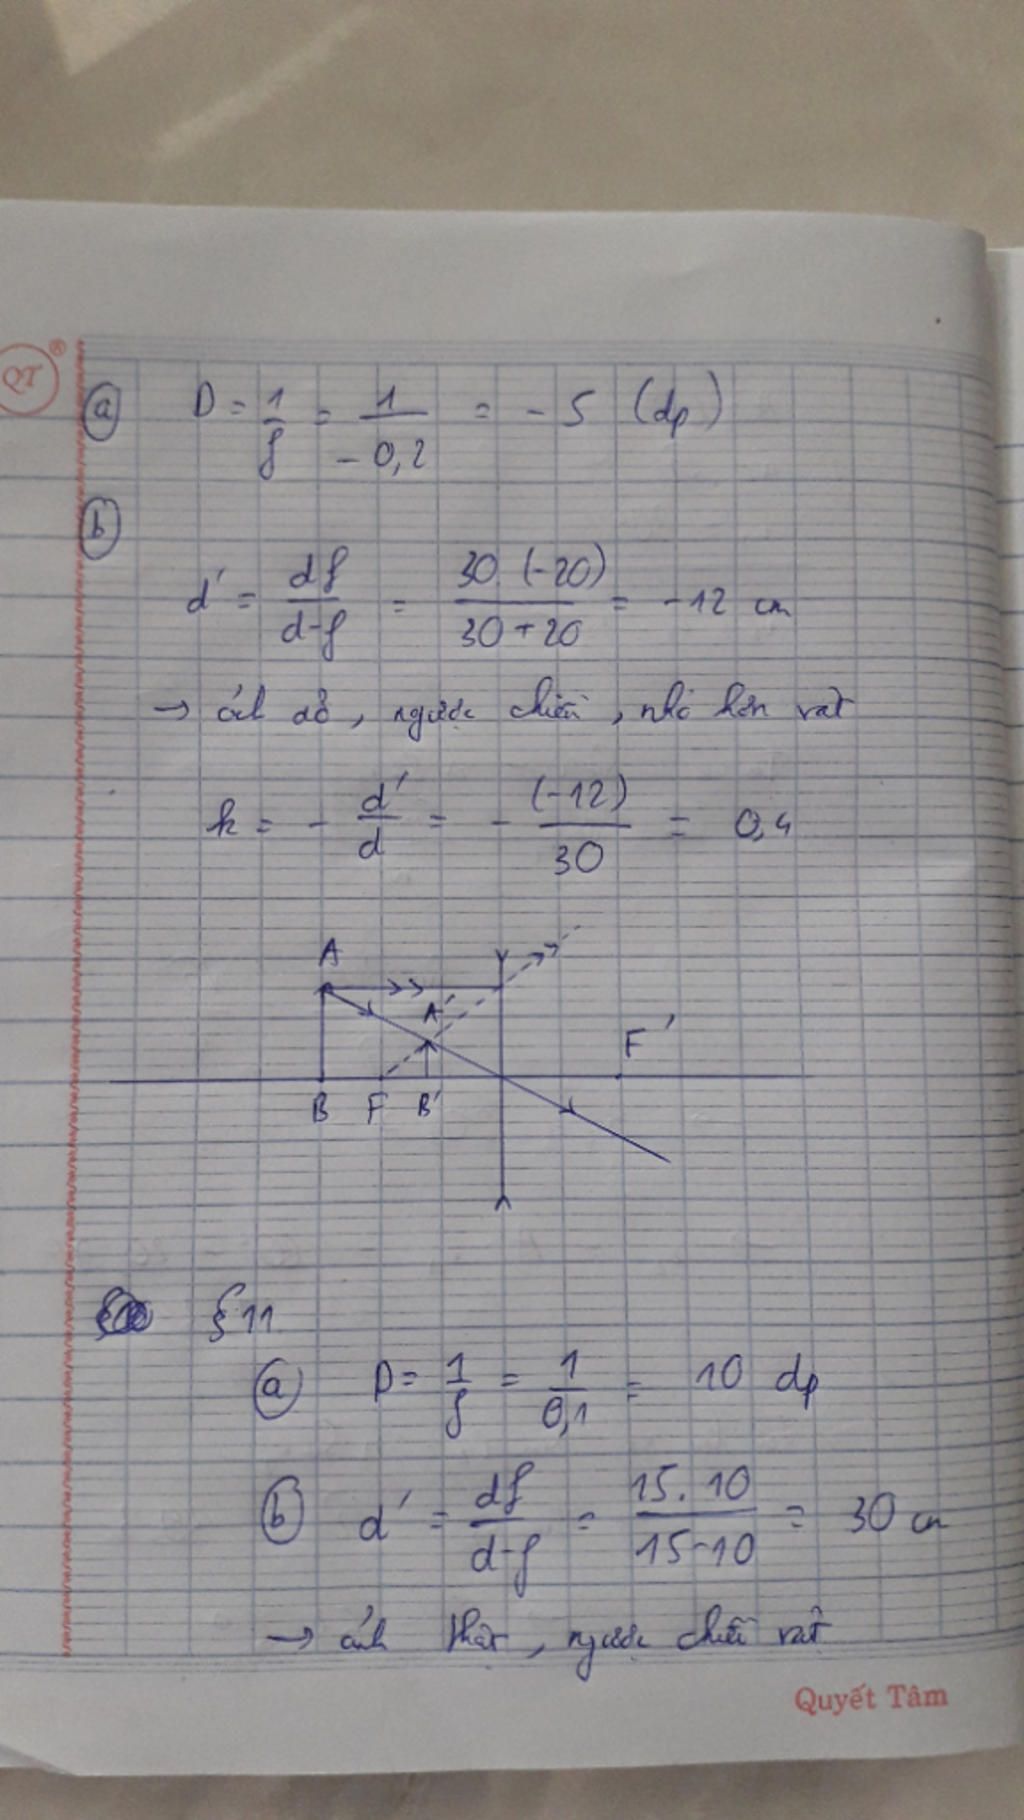 QT ®
(a) D = 1/f = 1/-0,2 = -5 (dp)
(b)
d' = df/d-f = 30 (-20)/30+20 = -12 cm
→ ảnh ảo, ngược chiều, nhỏ hơn vật
k = - d'/d = - (-12)/30 = 0,4
A
A'
F'
B F B'
§ 11
(a) D = 1/f = 1/0,1 = 10 dp
(b) d' = df/d-f = 15.10/15-10 = 30 cm
→ ảnh thật, ngược chiều vật
Quyết Tâm